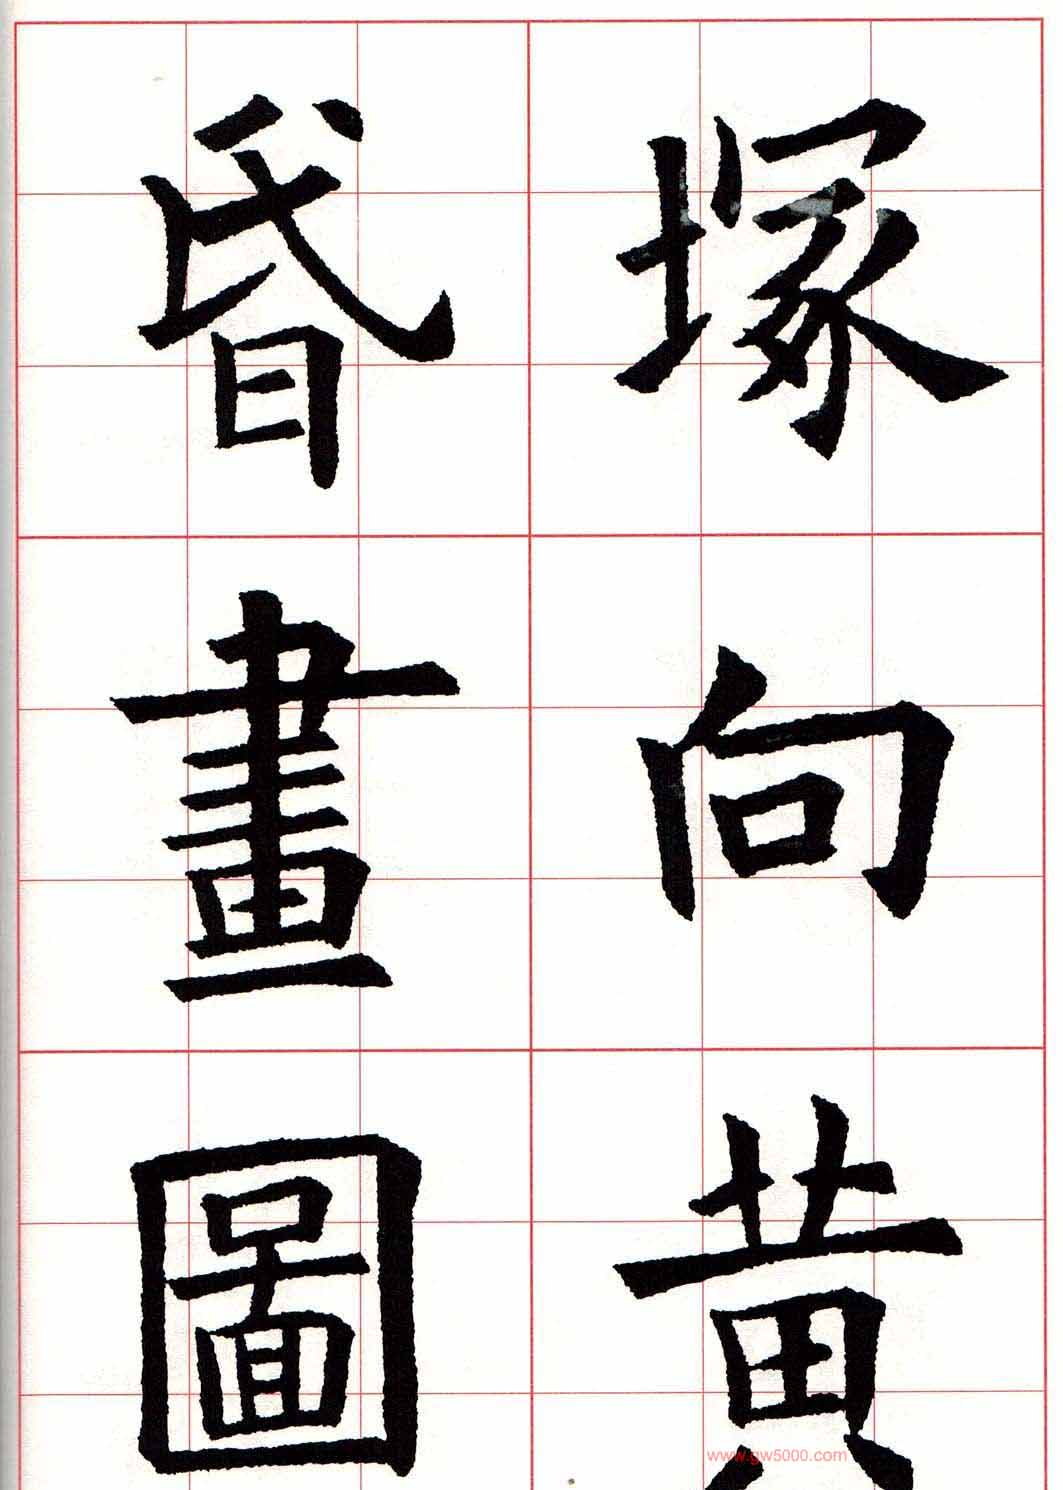 塚向黄
昏畫圖
www.gw5000.com